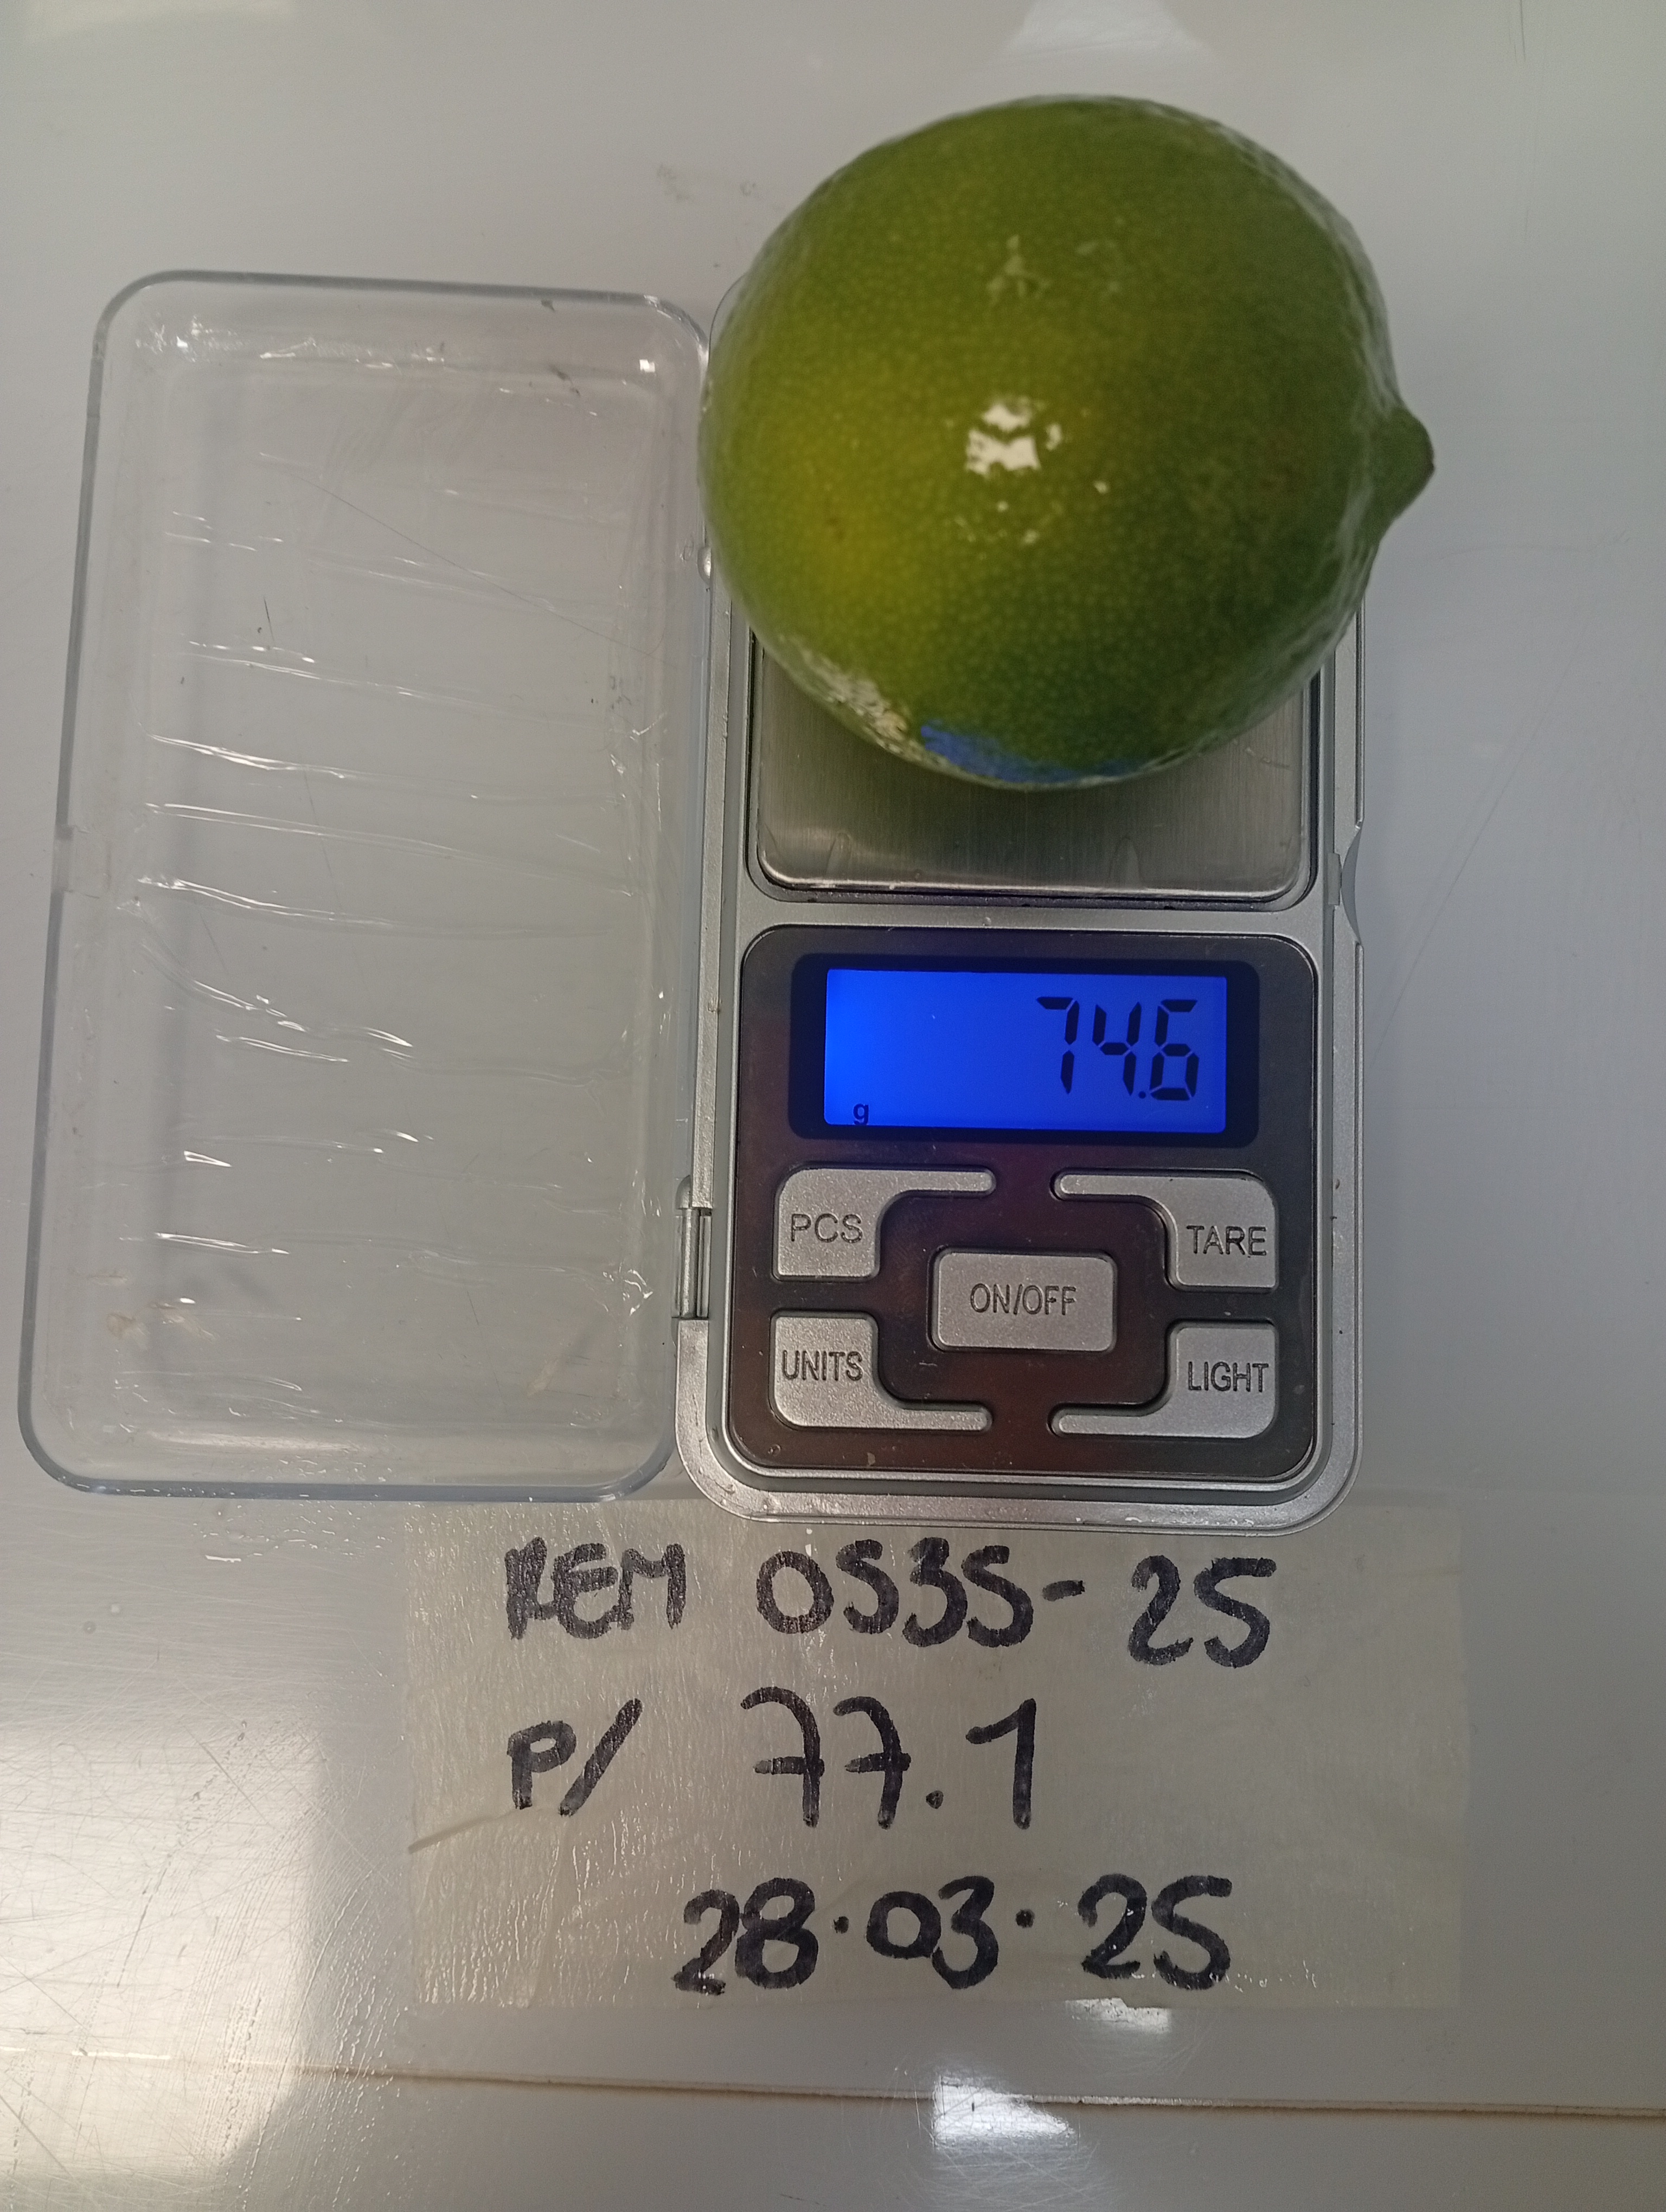 74.6
g
PCS
TARE
ON/OFF
UNITS
LIGHT
REM 0535-25
P/ 77.1
28.03.25